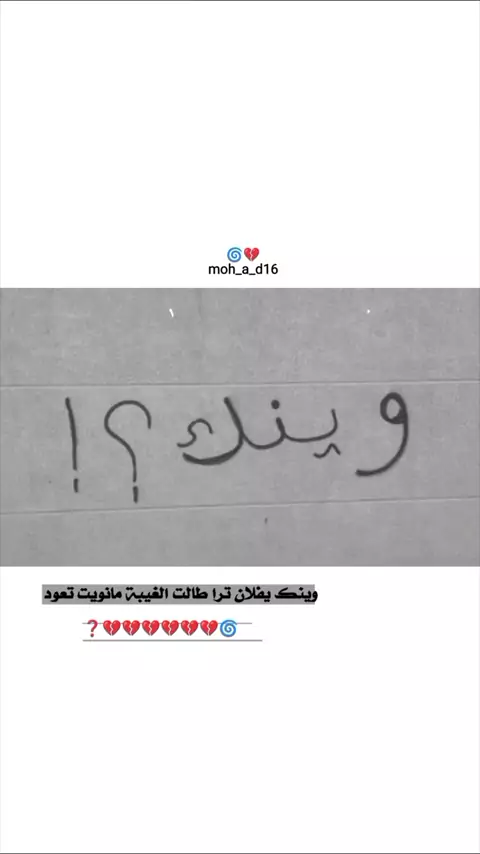 🌀💔
moh_a_d16
وينك ؟!
وينك يفلان ترا طالت الغيبة مانويت تعود
🌀💔💔💔💔💔💔❓